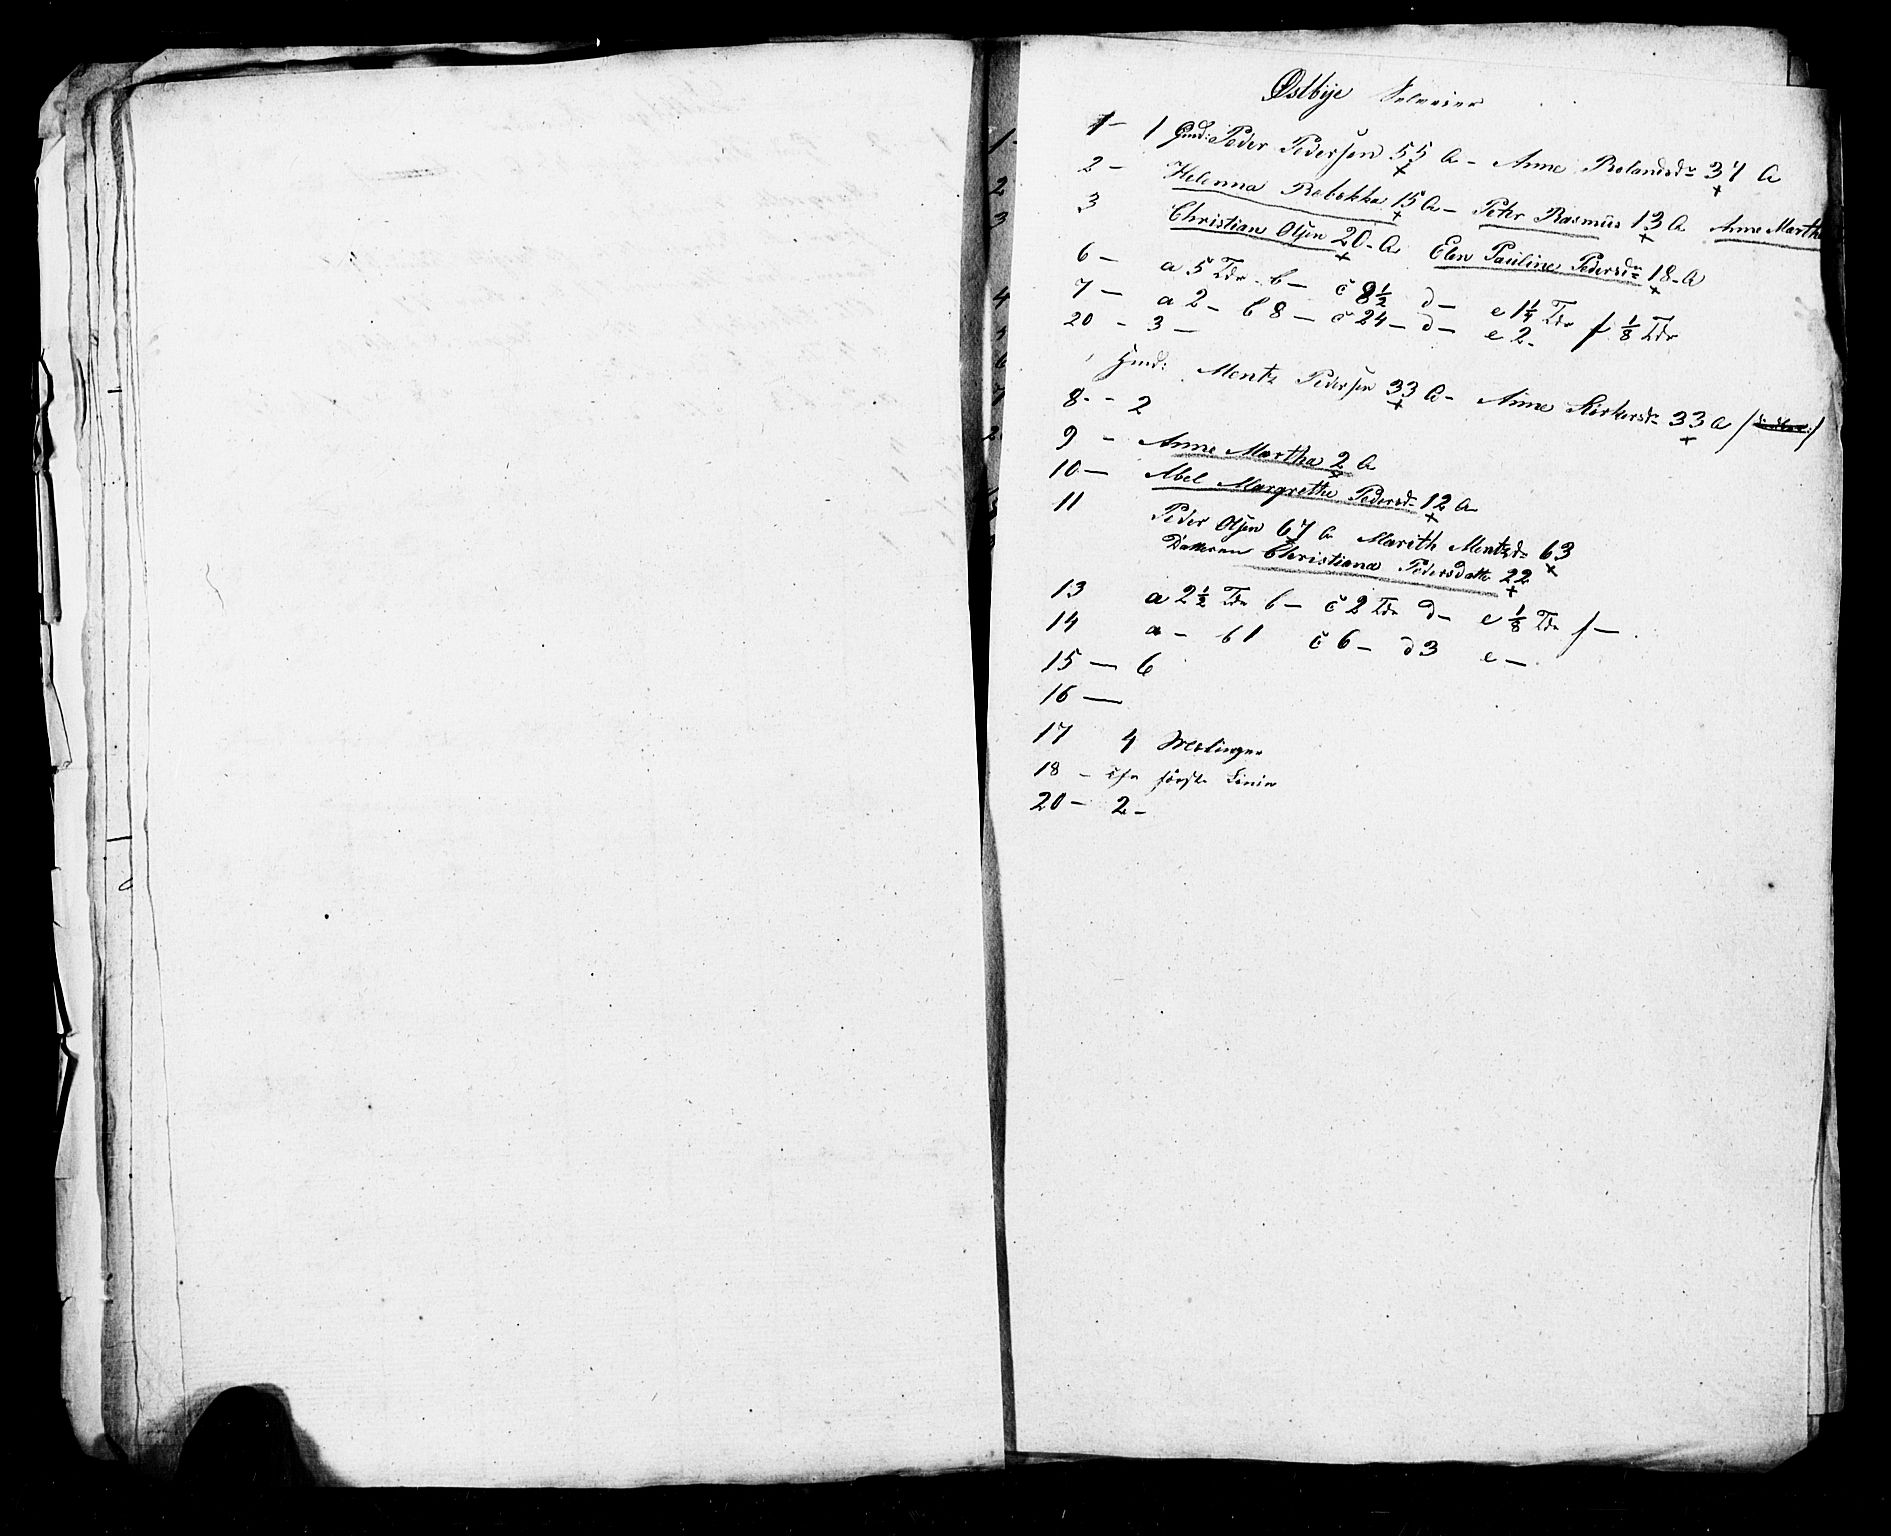 Østbÿe Selveier
1 - 1 Gmd: Peder Pedersen 55 A - Anne Rolandsdr 37 A
2 - Helenna Rebekka 15 A - Peter Rasmus 13 A Anne Martha
3 Christian Olsen 20 - A Elen Pauline Pedersdr 18 - A
6 - a 5 Tdr - b - c 8½ d - e 1¼ Tdr f ⅛ Tdr
7 - a 2 - b 8 - c 24 - d - e 2 -
20 - 3 -
Gmd: Mentz Pedersen 33 A - Anne 33 A
8 - - 2
9 - Anne Martha 2 A
10 - Abel Margrethe Pedersdr 12 A
11 Peder Olsen 67 A Marith Mentzdr 63
Datteren Christiana Pedersdatter 22
13 a 2½ Tdr b - c 2 Tdr d - e ⅛ Tdr f -
14 a - b 1 c 6 - d 3 e -
15 - 6
16 -
17 4 Melinger
18 - første Linie
20 - 2 -